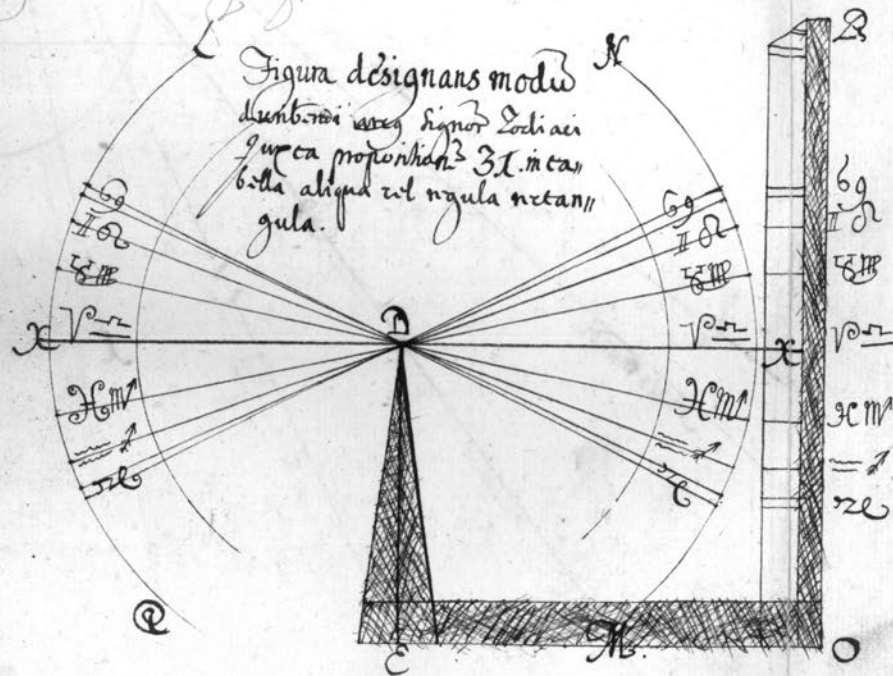 L
N
Figura designans modũ
describendi arcus signorũ Zodiaci
juxta propositionẽ 31. in ta„
bella aliqua vel regula rectan„
gula.
R
♋
♊ ♌
♉ ♍
♈ ♎
♓ ♏
♒ ♐
♑
♋
♊ ♌
♉ ♍
♈ ♎
♓ ♏
♒ ♐
♑
♋
♊ ♌
♉ ♍
♈ ♎
♓ ♏
♒ ♐
♑
X
D
X
Q
C
M.
O